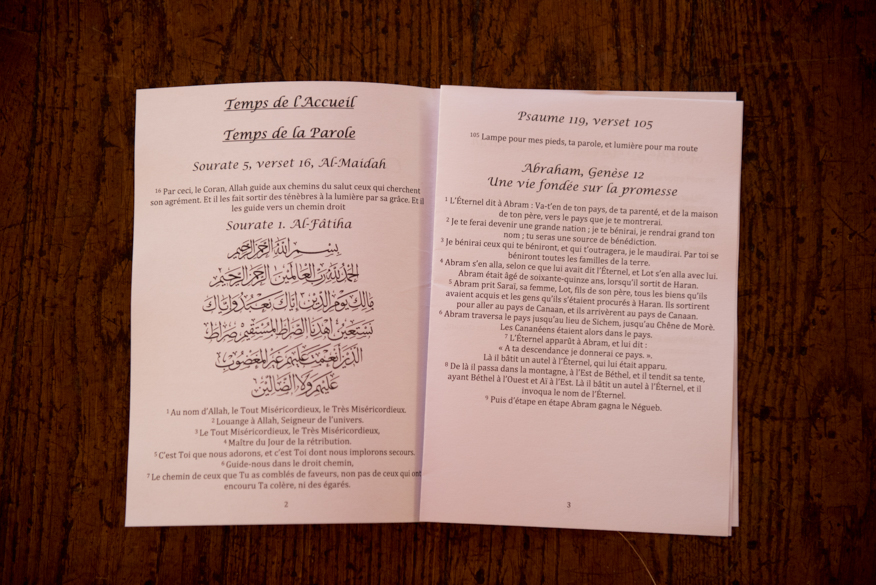 Temps de l'Accueil
Temps de la Parole
Sourate 5, verset 16, Al-Maidah
16 Par ceci, le Coran, Allah guide aux chemins du salut ceux qui cherchent
son agrément. Et il les fait sortir des ténèbres à la lumière par sa grâce. Et il
les guide vers un chemin droit
Sourate 1. Al-Fâtiha
بسم الله الرحمن الرحيم
الحمد لله رب العالمين الرحمن الرحيم
مالك يوم الدين إياك نعبد وإياك
نستعين اهدنا الصراط المستقيم صراط
الذين أنعمت عليهم غير المغضوب
عليهم ولا الضالين
1 Au nom d'Allah, le Tout Miséricordieux, le Très Miséricordieux.
2 Louange à Allah, Seigneur de l'univers.
3 Le Tout Miséricordieux, le Très Miséricordieux,
4 Maître du Jour de la rétribution.
5 C'est Toi que nous adorons, et c'est Toi dont nous implorons secours.
6 Guide-nous dans le droit chemin,
7 Le chemin de ceux que Tu as comblés de faveurs, non pas de ceux qui ont
encouru Ta colère, ni des égarés.
2
Psaume 119, verset 105
105 Lampe pour mes pieds, ta parole, et lumière pour ma route
Abraham, Genèse 12
Une vie fondée sur la promesse
1 L'Éternel dit à Abram : Va-t'en de ton pays, de ta parenté, et de la maison
de ton père, vers le pays que je te montrerai.
2 Je te ferai devenir une grande nation ; je te bénirai, je rendrai grand ton
nom ; tu seras une source de bénédiction.
3 Je bénirai ceux qui te béniront, et qui t'outragera, je le maudirai. Par toi se
béniront toutes les familles de la terre.
4 Abram s'en alla, selon ce que lui avait dit l'Éternel, et Lot s'en alla avec lui.
Abram était âgé de soixante-quinze ans, lorsqu'il sortit de Haran.
5 Abram prit Saraï, sa femme, Lot, fils de son père, tous les biens qu'ils
avaient acquis et les gens qu'ils s'étaient procurés à Haran. Ils sortirent
pour aller au pays de Canaan, et ils arrivèrent au pays de Canaan.
6 Abram traversa le pays jusqu'au lieu de Sichem, jusqu'au Chêne de Morè.
Les Cananéens étaient alors dans le pays.
7 L'Éternel apparût à Abram, et lui dit :
« A ta descendance je donnerai ce pays. ».
Là il bâtit un autel à l'Éternel, qui lui était apparu.
8 De là il passa dans la montagne, à l'Est de Béthel, et il tendit sa tente,
ayant Béthel à l'Ouest et Aï à l'Est. Là il bâtit un autel à l'Éternel, et il
invoqua le nom de l'Éternel.
9 Puis d'étape en étape Abram gagna le Négueb.
3